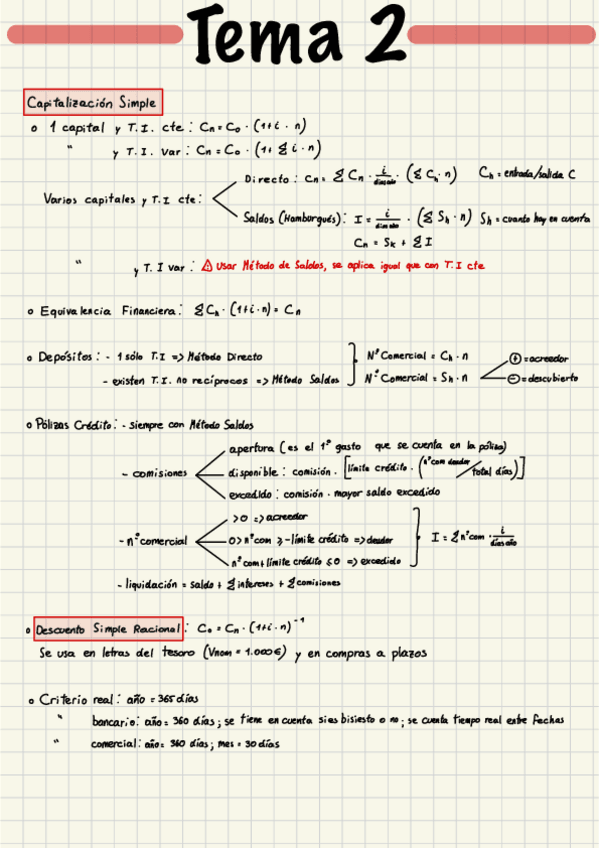 Tema 2
Capitalización Simple
o 1 capital y T.I. cte: Cn = C₀ · (1+i · n)
" y T.I. var: Cn = C₀ · (1+ Σ i · n)
Varios capitales y T.I cte:
Directo: Cn = Σ Cn · i/días año · (Σ Cₕ · n) Cₕ = entrada/salida C
Saldos (Hamburgués): I = i/días año · (Σ Sₕ · n) Sₕ = cuanto hay en cuenta
Cn = Sₖ + Σ I
" y T.I var: ⚠ Usar Método de Saldos, se aplica igual que con T.I cte
o Equivalencia Financiera: Σ Cₕ · (1+i · n) = Cn
o Depósitos: - 1 sólo T.I => Método Directo
- existen T.I. no recíprocos => Método Saldos
Nº Comercial = Cₕ · n
Nº Comercial = Sₕ · n
+ = acreedor
- = descubierto
o Pólizas Crédito: - siempre con Método Saldos
- comisiones
apertura (es el 1º gasto que se cuenta en la póliza)
disponible: comisión · [límite crédito · (nº com deudor / total días)]
excedido: comisión · mayor saldo excedido
- nº comercial
>0 => acreedor
0 > nº com ≥ -límite crédito => deudor
nº com + límite crédito ≤ 0 => excedido
I = Σ nº com · i/días año
- liquidación = saldo + Σ intereses + Σ comisiones
o Descuento Simple Racional: C₀ = Cn · (1+i · n)⁻¹
Se usa en letras del tesoro (Vnom = 1.000€) y en compras a plazos
o Criterio real: año = 365 días
" bancario: año = 360 días; se tiene en cuenta si es bisiesto o no; se cuenta tiempo real entre fechas
" comercial: año = 360 días; mes = 30 días